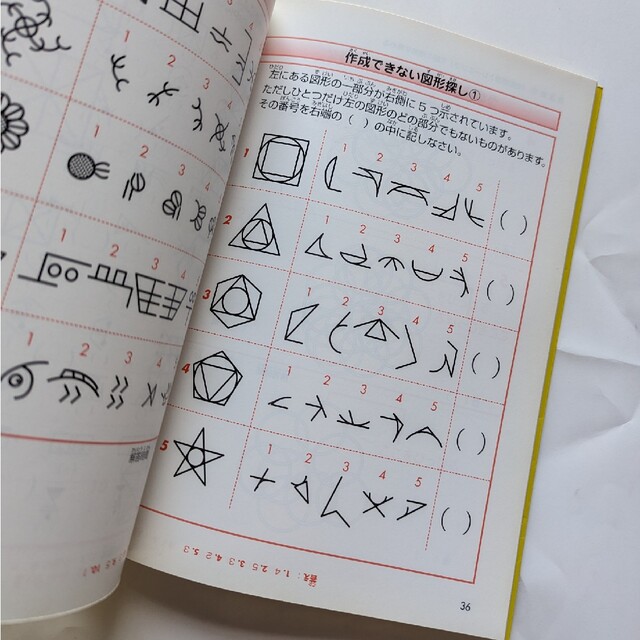 作成できない図形探し①
左にある図形の一部分が右側に5つ示されています。
ただしひとつだけ左の図形のどの部分でもないものがあります。
その番号を右端の( )の中に記しなさい。
1 1 2 3 4 5 ( )
2 1 2 3 4 5 ( )
3 1 2 3 4 5 ( )
4 1 2 3 4 5 ( )
5 1 2 3 4 5 ( )
答え:1.4 2.5 3.3 4.2 5.3
36
3 4
1 2 3 4
1 2 3 4
1 2 3 4